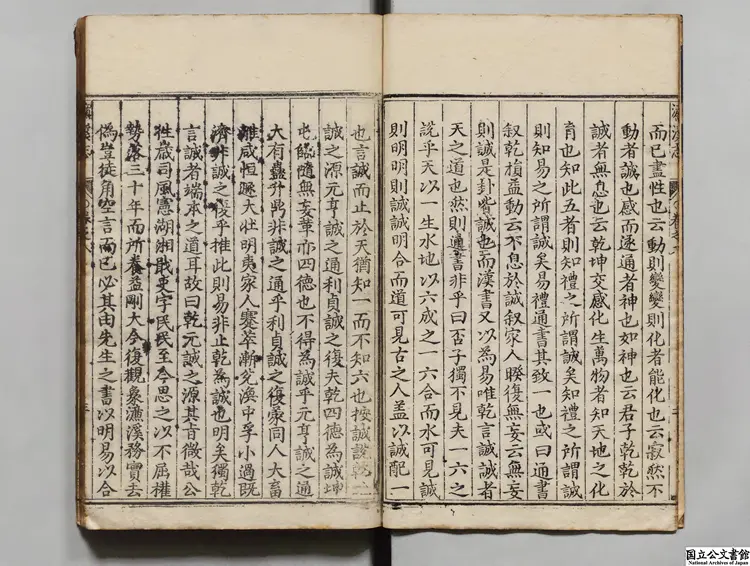 而已盡性也云動則變變則化者能化也云寂然不
動者誠也感而遂通者神也如神也云君子乾乾於
誠者無息也云乾坤交感化生萬物者知天地之化
育也知此五者則知禮之所謂誠矣知禮之所謂誠
則知易之所謂誠矣易禮通書其致一也或曰通書
叙乾損益動云不息於誠叙家人睽復無妄云無妄
則誠是卦皆誠也而漢書又以為易唯乾言誠誠者
天之道也然則通書非乎曰否子獨不見夫一六之
說乎天以一生水地以六成之一六合而水可見誠
則明明則誠誠明合而道可見古之人盖以誠配一
也言誠而止於天猶知一而不知六也按誠說乾
誠之源元亨誠之通利貞誠之復夫乾四德為誠坤
屯臨隨無妄革亦四德也不得為誠乎元亨誠之通
大有蠱升鼎非誠之通乎利貞誠之復蒙同人大畜
離咸恒遯大壯明夷家人蹇萃漸兌渙中孚小過既
濟非誠之復乎推此則易非止乾為誠也明矣獨乾
言誠者端本之道耳故曰乾元誠之源其旨微哉公
牲歲司風憲湖湘戢吏字民民至今思之以不屈權
勢落三十年而所養益剛大今復觀象濂溪務實去
偽豈徒角空言而已必其由先生之書以明易以合
濂溪志
國立公文書館
National Archives of Japan